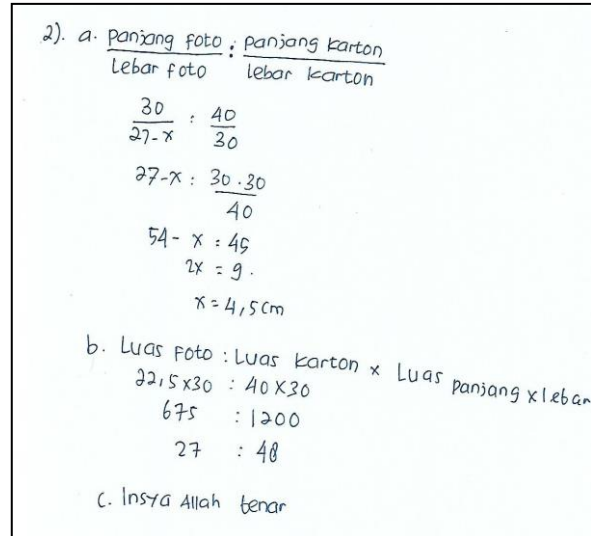 2). a. panjang foto : panjang karton
lebar foto lebar karton
30 : 40
27-x 30
27-x : 30 . 30
40
54 - x : 45
2x = 9 .
x = 4,5 cm
b. Luas Foto : Luas karton x Luas panjang x lebar
22,5 x 30 : 40 x 30
675 : 1200
27 : 48
c. Insya Allah benar